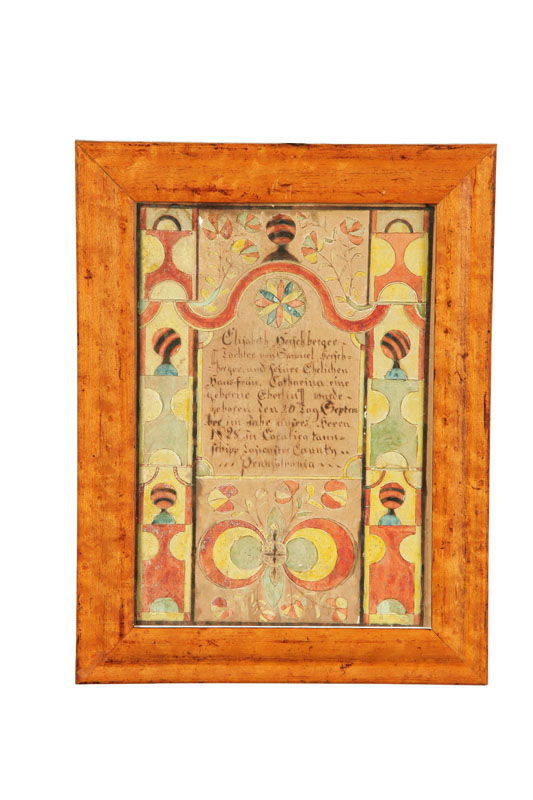 Elisabeth Herschberger
Tochter von Samuel Hersch-
berger, und seiner Ehelichen
Hausfrau, Catharina eine
geborne Eberlin wurde
geboren den 20 Tag Septem
ber im Jahr unsers Heren
1828, in Cocalico taun-
schipp Lancaster County
Pennsylvania